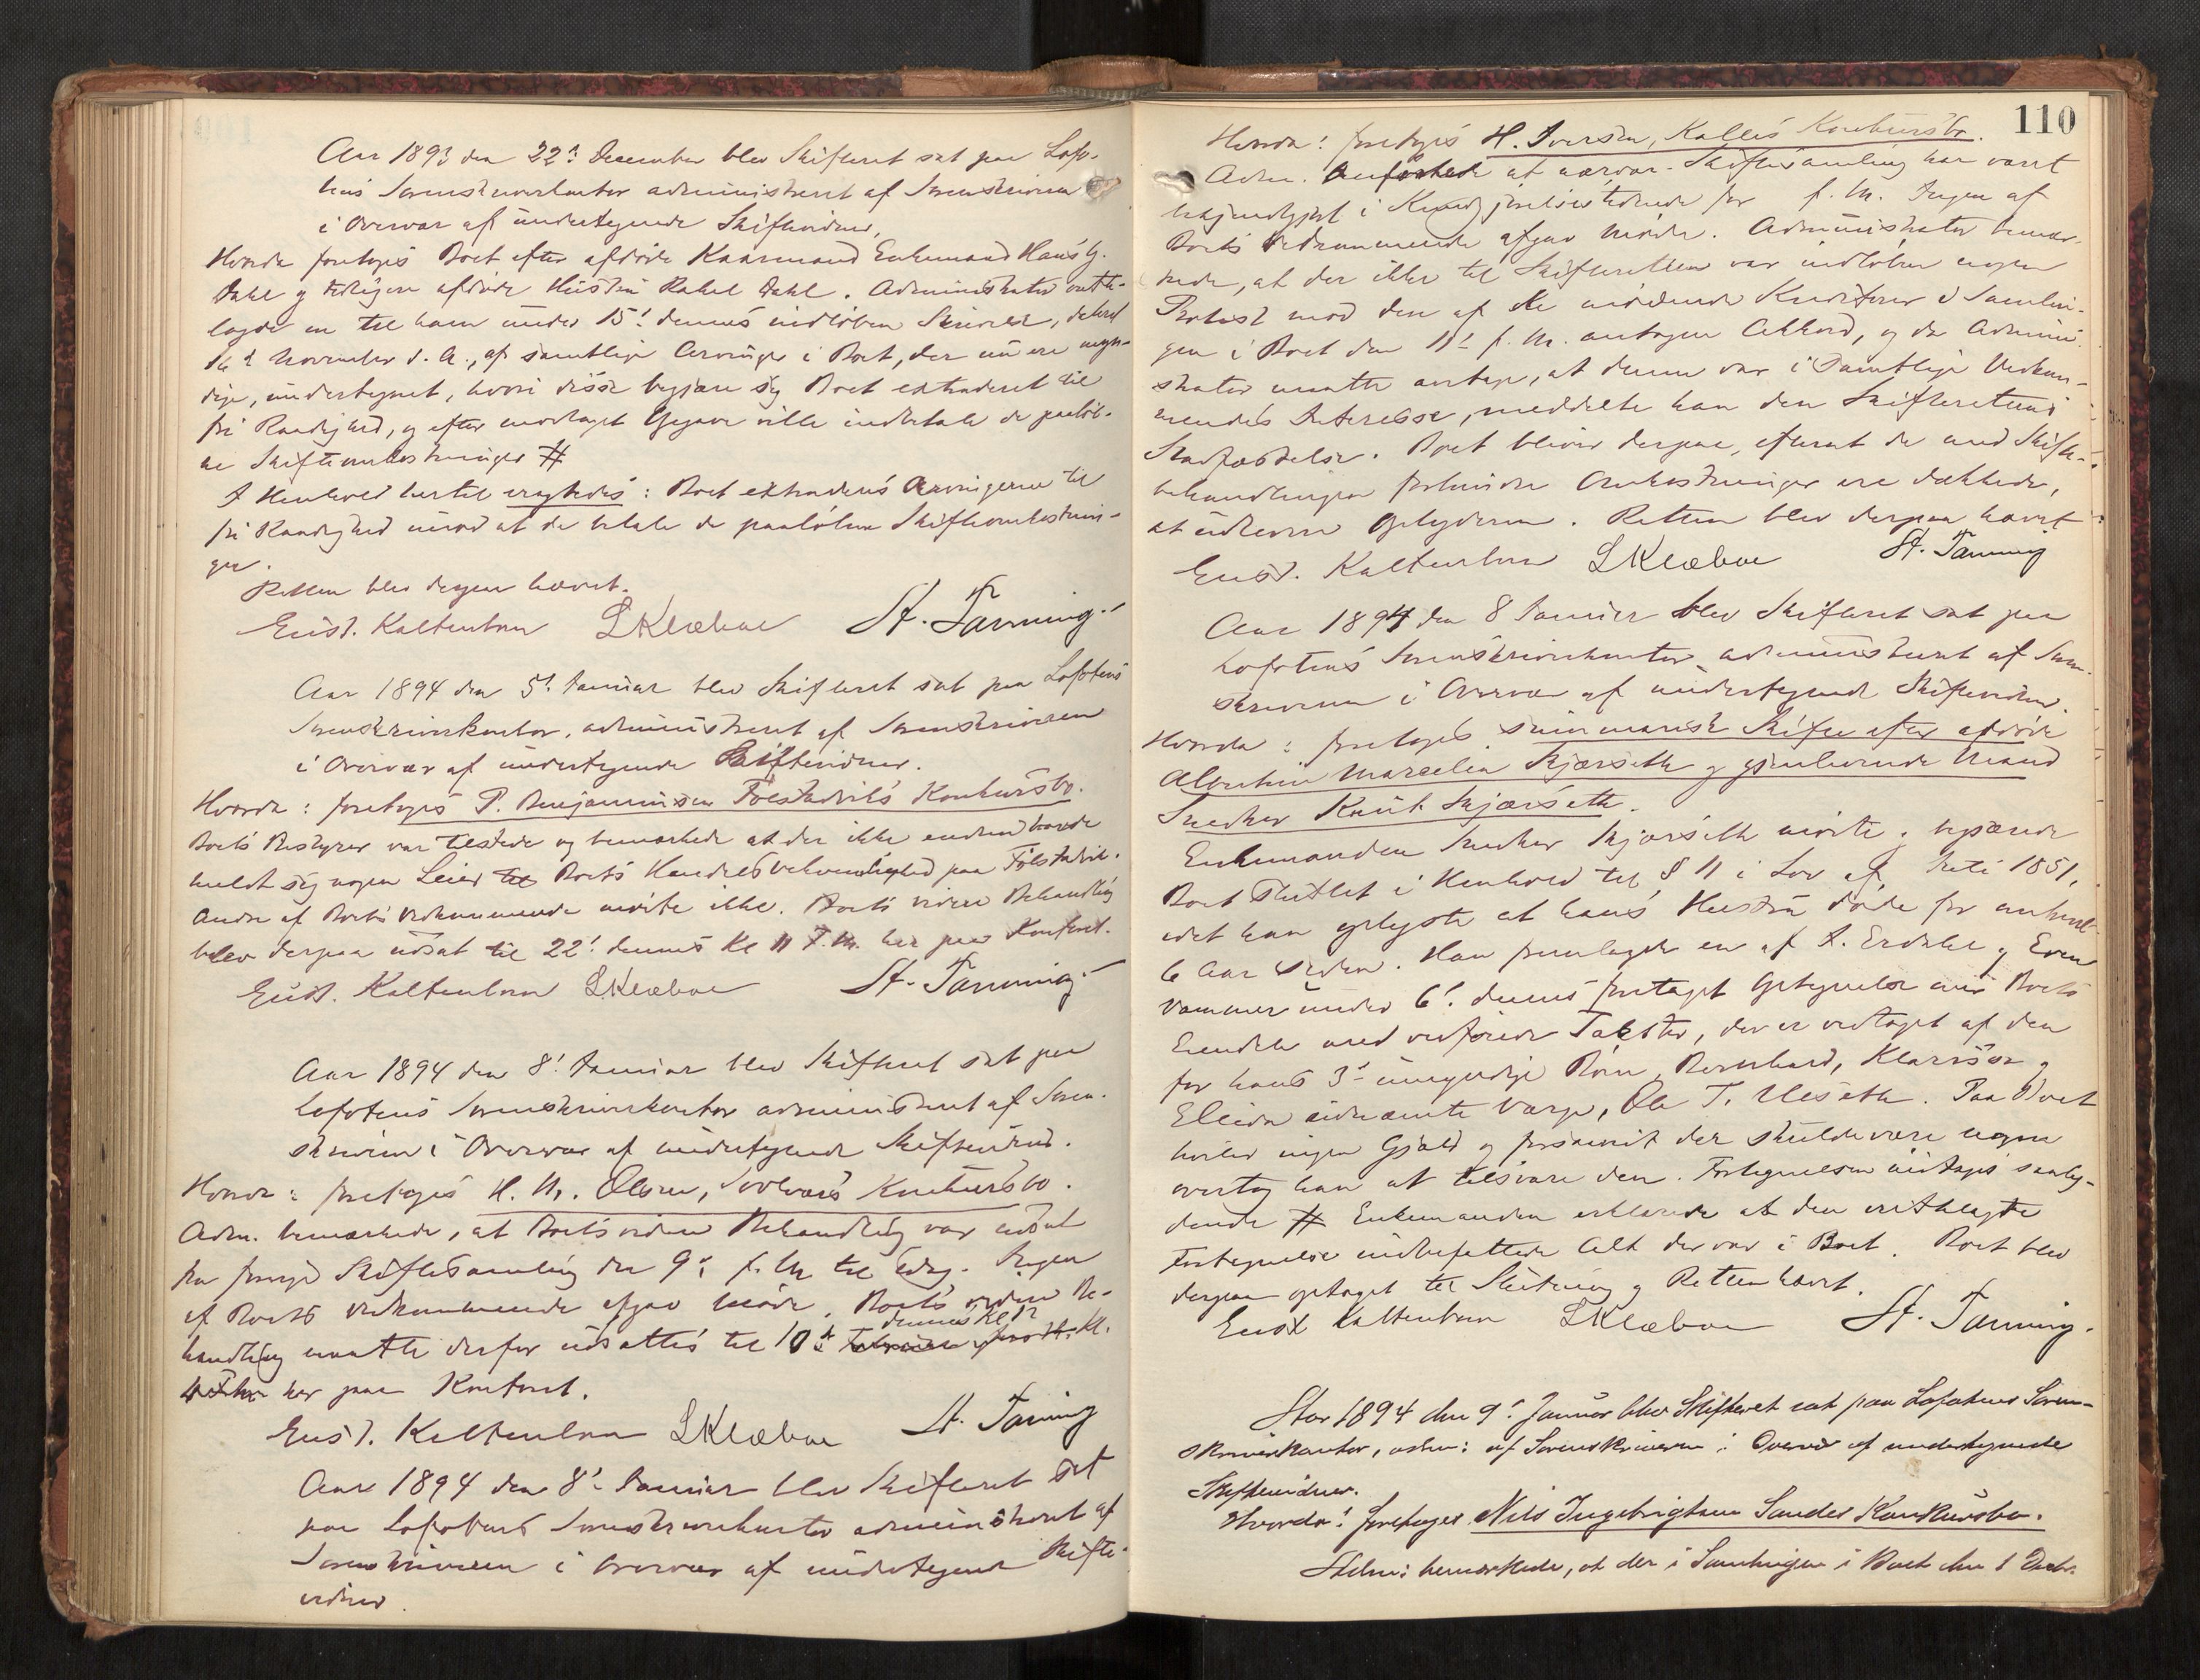 Aar 1893 den 22' December blev Skifteret sat paa Lofo-
tens Sorenskriverkontor administreret af Sorenskriveren
i Overvær af undertegnede Skiftevidner,
Hvorda foretoges Boet efter afdøde Kaarmand Enkemand Hans G.
Dahl og tidligere afdøde Hustru Rakel Dahl. Administrator fremlagde
en til ham under 15' dennes indløben Skrivelse, dateret
November d. A., af samtlige Arvinger i Boet, der nu ere myn-
dige, undertegnet, hvori disse begjære sig Boet extraderet til
fri Raadighed, og efter modtaget Opgave ville indbetale de paaløb-
ne Skifteomkostninger #
I Henhold hertil eragtedes: Boet extraderes Arvingerne til
fri Raadighed imod at de betale de paaløbne Skifteomkostnin-
ger.
Retten blev derpaa hævet.
Eust. Kaltenborn LKlæboe St. Tanning
Aar 1894 den 5' Januar blev Skifteret sat paa Lofotens
Sorenskriverkontor, administreret af Sorenskriveren
i Overvær af undertegnede Skiftevidner.
Hvorda: foretoges P. Benjaminsen Følstadviks Konkursbo.
Boets Bestyrer var tilstede og bemærkede at der ikke endnu havde
meldt sig nogen Leier til Boets Handelsbekvemlighed paa Følstadvik.
Andre af Boets Vedkommende mødte ikke. Boets videre Behandling
blev derpaa udsat til 22' dennes Kl 11 F.M. her paa Kontoret.
Eust. Kaltenborn LKlæboe St. Tanning
Aar 1894 den 8' Januar blev Skifteret sat paa
Lofotens Sorenskriverkontor administreret af Soren-
skriveren i Overvær af undertegnede Skiftevidner.
Hvorda: foretoges H. M. Olsen, Svolværs Konkursbo.
Adm. bemærkede, at Boets videre Behandling var udsat
fra forrige Skiftesamling den 9' f. M. til idag. Ingen
af Boets Vedkommende afgav Møde. Boets videre Be-
dennes Kl 12
handling maatte derfor udsættes til 10de Februar Kl.
her paa Kontoret.
Eust. Kaltenborn LKlæboe St. Tanning
Aar 1894 den 8' Januar blev Skifteret sat
paa Lofotens Sorenskriverkontor administreret af
Sorenskriveren i Overvær af undertegnede Skifte-
vidner.
110
Hvorda: foretoges H. Iversen, Kalles Konkursbo.
Adm. anførte at nærvær. Skiftesamling har været
bekjendtgjort i Kundgjørelsestidende for f. M. Ingen af
Boets Vedkommende afgav Møde. Administrator bemær-
kede, at der ikke til Skifteretten var indløben nogen
Protest mod den af de mødende Kreditorer i Samlin-
gen i Boet den 11' f. M. antagne Akkord, og da Admini-
strator maatte antage, at denne var i samtlige Vedkom-
mendes Interesse, meddelte han den Skifterettens
Stadfæstelse. Boet bliver derpaa, efterat de med Skifte-
behandlingen forbundne Omkostninger ere dækkede,
at udlevere Opbyderen. Retten blev derpaa hævet
Eust. Kaltenborn LKlæboe St. Tanning
Aar 1894 den 8 Januar blev Skifteret sat paa
Lofotens Sorenskriverkontor administreret af Soren-
skriveren i Overvær af undertegnede Skiftevidner.
Hvorda: foretoges summarisk Skifte efter afdøde
Albertine Marcelia Skjærseth og gjenlevende Mand
Snedker Knut Skjærseth.
Enkemanden Snedker Skjærseth mødte og begjærede
Boet sluttet i Henhold til § 11 i Lov af Juli 1851,
idet han oplyste at hans Hustru døde for omtrent
6 Aar siden. Han fremlagde en af A. Erdahl og Even
Vammer under 6' dennes foretaget Optegnelse over Boets
Eiendele med vedføiede Takster, der er vedtaget af den
for hans 3 umyndige Børn, Bernhard, Klarisse og
Elida udnævnte Værge, Ole T. Uleseth. Paa Boet
hviler ingen Gjæld og forsaavidt der skulde være nogen
overtog han at tilsvare den. Fortegnelsen indtages saaly-
dende # Enkemanden erklærede at den fremlagte
Fortegnelse indbefattede Alt der var i Boet. Boet blev
derpaa optaget til Slutning og Retten hævet.
Eust Kaltenborn LKlæboe St. Tanning.
Aar 1894 den 9' Januar blev Skifteret sat paa Lofotens Soren-
skriverkontor, adm: af Sorenskriveren i Overvær af undertegnede
Skiftevidner.
Hvorda: foretoges Nils Ingebrigtsen Sandes Konkursbo.
Adm: bemærkede, at der i Samlingen i Boet den 1 Decbr.